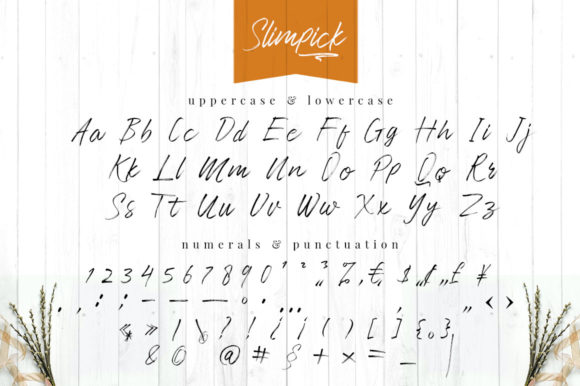 Slimpick
uppercase & lowercase
Aa Bb Cc Dd Ee Ff Gg Hh Ii Jj
Kk Ll Mm Nn Oo Pp Qq Rr
Ss Tt Uu Vv Ww Xx Yy Zz
numerals & punctuation
1 2 3 4 5 6 7 8 9 0 ¹ ² ³ % € $ £ ¥
. , : ; – — — ° · … , „ ‹ ›
« » | \ ? ! ¿ ¡ ( ) [ ] { }
& @ # § + × = _